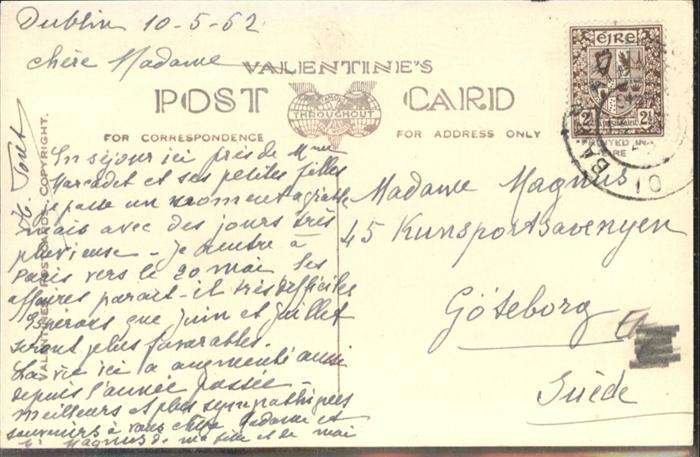 Dublin 10-5-52
Chère Madame
VALENTINE'S
POST CARD
THROUGHOUT
FOR CORRESPONDENCE
FOR ADDRESS ONLY
VALENTINES POSTCARDS. COPYRIGHT.
En séjour ici près de Mme
Marcadet et ses petites filles
je passe un moment agréable
mais avec des jours très
pluvieuse - Je rentre à
Paris vers le 20 mai les
affaires parait-il très difficiles
Espérons que Juin et Juillet
seront plus favorables.
La vie ici a augmenté aussi
depuis l'année passée -
meilleurs et plus sympathiques
souvenirs à vous chère Madame et
Magnus de ma fille et de moi
Madame Magnus
45 Kunsportsavenyen
Göteborg
Suède
ÉIRE
2½ 2½
PRINTED IN
EIRE